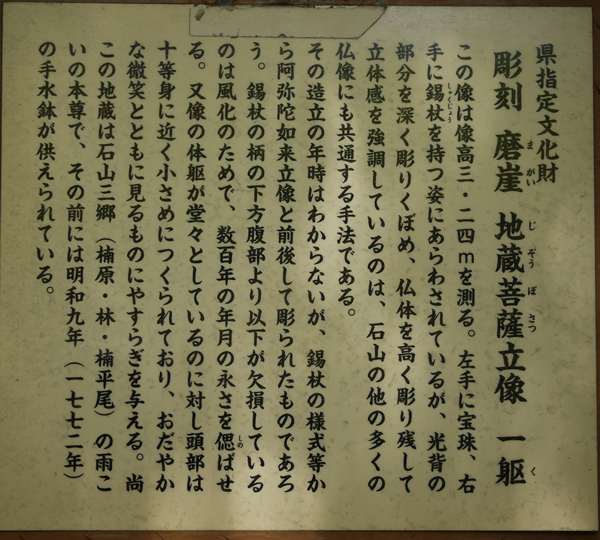 県指定文化財
彫刻 磨崖 地蔵菩薩立像 一躯
まがい じぞうぼさつ く
この像は像高三・二四ｍを測る。左手に宝珠、右
手に錫杖を持つ姿にあらわされているが、光背の
しゃくじょう
部分を深く彫りくぼめ、仏体を高く彫り残して
立体感を強調しているのは、石山の他の多くの
仏像にも共通する手法である。
その造立の年時はわからないが、錫杖の様式等か
ら阿弥陀如来立像と前後して彫られたものであろ
う。錫杖の柄の下方腹部より以下が欠損している
のは風化のためで、数百年の年月の永さを偲ばせ
しの
る。又像の体躯が堂々としているのに対し頭部は
十等身に近く小さめにつくられており、おだやか
な微笑とともに見るものにやすらぎを与える。尚
この地蔵は石山三郷（楠原・林・楠平尾）の雨こ
いの本尊で、その前には明和九年（一七七二年）
の手水鉢が供えられている。